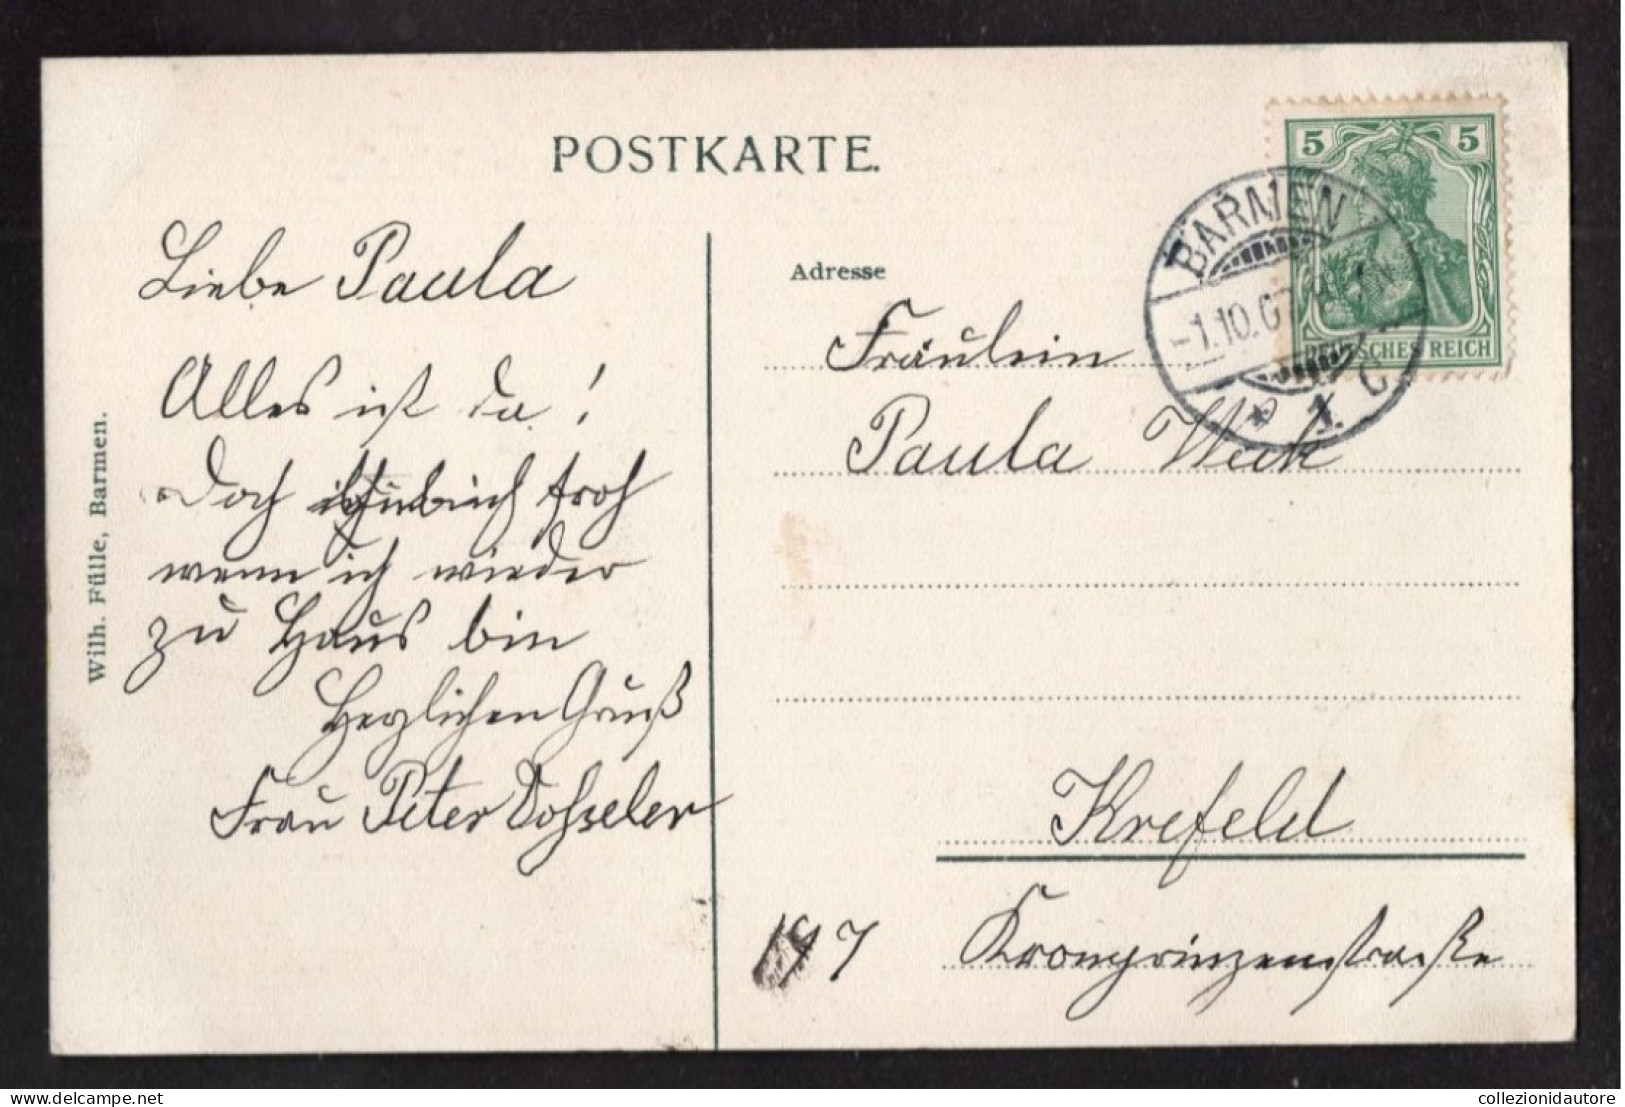 POSTKARTE.
Liebe Paula
Alles ist da!
Doch bin ich froh
wenn ich wieder
zu Haus bin
Herzlichen Gruß
Frau Peter
Wilh. Fülle, Barmen.
Adresse
Fräulein
Paula
Krefeld
Kronprinzenstraße
7
5 5
DEUTSCHES REICH
BARMEN
-1.10.07
* 1 c
collezionidautore